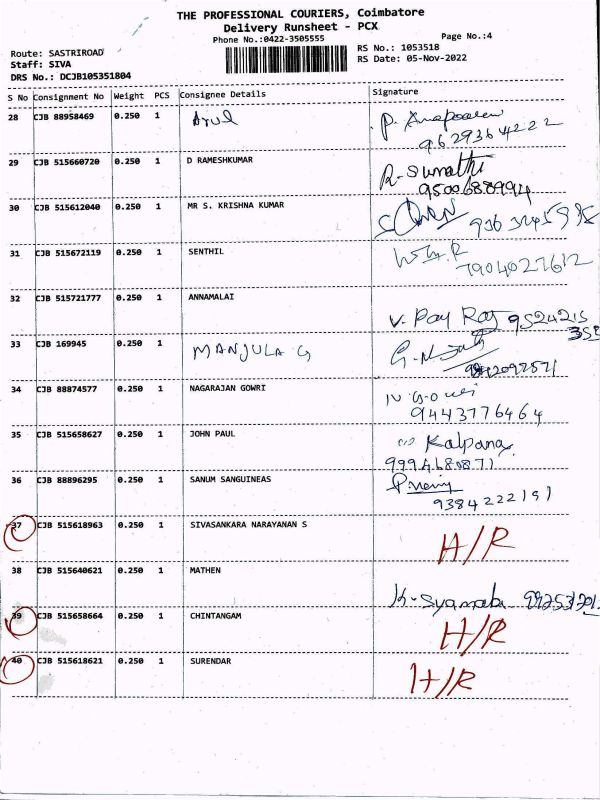 THE PROFESSIONAL COURIERS, Coimbatore
Delivery Runsheet - PCX
Phone No.:0422-3505555
Page No.:4
Route: SASTRIROAD
RS No.: 1053518
Staff: SIVA
RS Date: 05-Nov-2022
DRS No.: DCJB105351804
S No Consignment No Weight PCS Consignee Details Signature
28 CJB 88958469 0.250 1 Arul P.
9629364222
29 CJB 515660720 0.250 1 D RAMESHKUMAR R-Sumathi
9500688994
30 CJB 515612040 0.250 1 MR S. KRISHNA KUMAR
31 CJB 515672119 0.250 1 SENTHIL
7904027612
32 CJB 515721777 0.250 1 ANNAMALAI V. Raj 9524215
355
33 CJB 169945 0.250 1 MANJULA G G.
34 CJB 88874577 0.250 1 NAGARAJAN GOWRI N Gowri
9443776464
35 CJB 515658627 0.250 1 JOHN PAUL Kalpana
9994680871
36 CJB 88896295 0.250 1 SANUM SANGUINEAS
9384222151
37 CJB 515618963 0.250 1 SIVASANKARA NARAYANAN S H/R
38 CJB 515640621 0.250 1 MATHEN K-Syamala
39 CJB 515658664 0.250 1 CHINTANGAM H/R
40 CJB 515618621 0.250 1 SURENDAR H/R